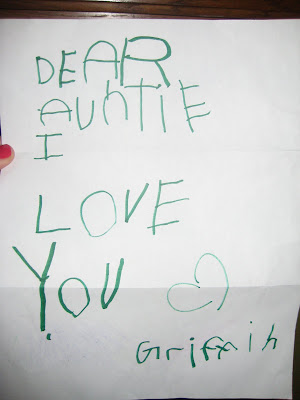 DEAR
AUNTIE
I
LOVE
YOU
Griffith